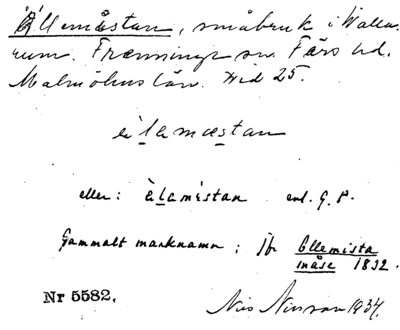 Ällemåstan, småbruk i Valla-
rum. Frenninge sn. Färs hd.
Malmöhus län. Hid 25.
èlamæstan
eller: èlamistan enl. G. P.
Gammalt marknamn; jfr Ellemista
måse 1832.
Nr 5582.
Nils Nilsson 1934.